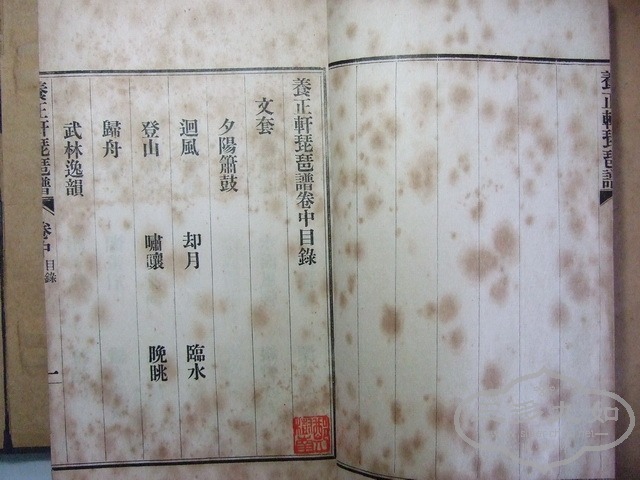 養正軒琵琶譜
養正軒琵琶譜卷中目錄
文套
夕陽簫鼓
迴風 却月 臨水
登山 嘯嚷 晚眺
歸舟
武林逸韻
養正軒琵琶譜 卷中 目錄 一